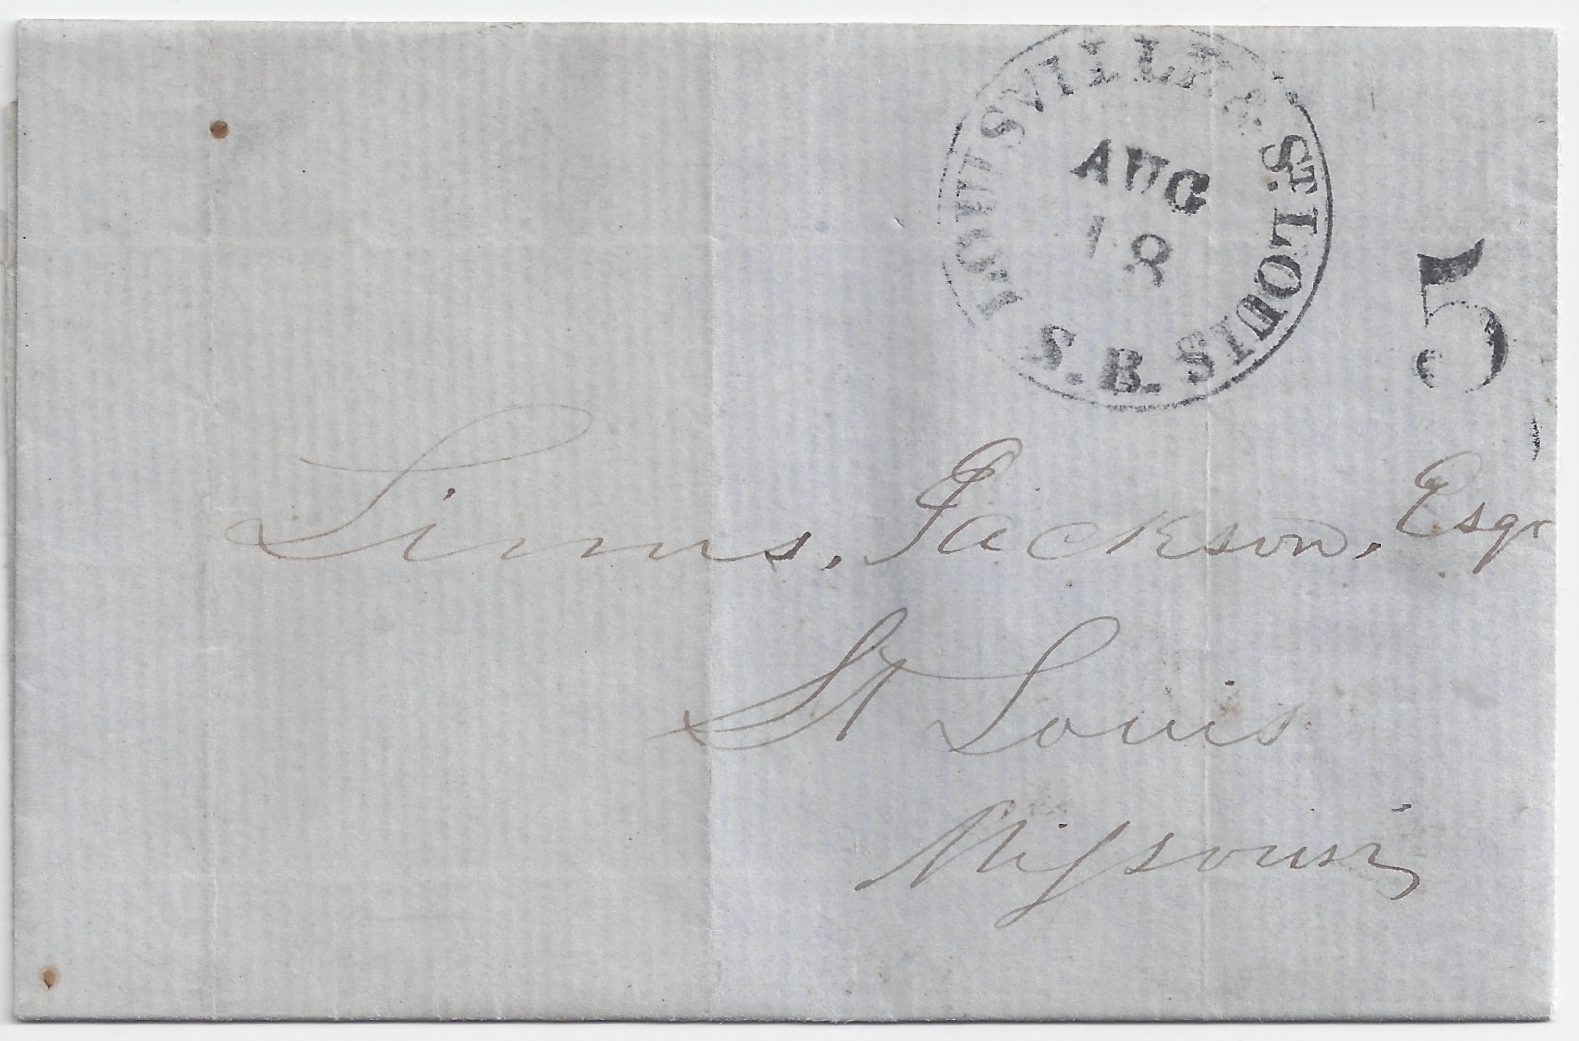 LOUISVILLE & ST. LOUIS S. B.
AUG
18
5
Sims. Jackson, Esqr
St Louis
Missouri